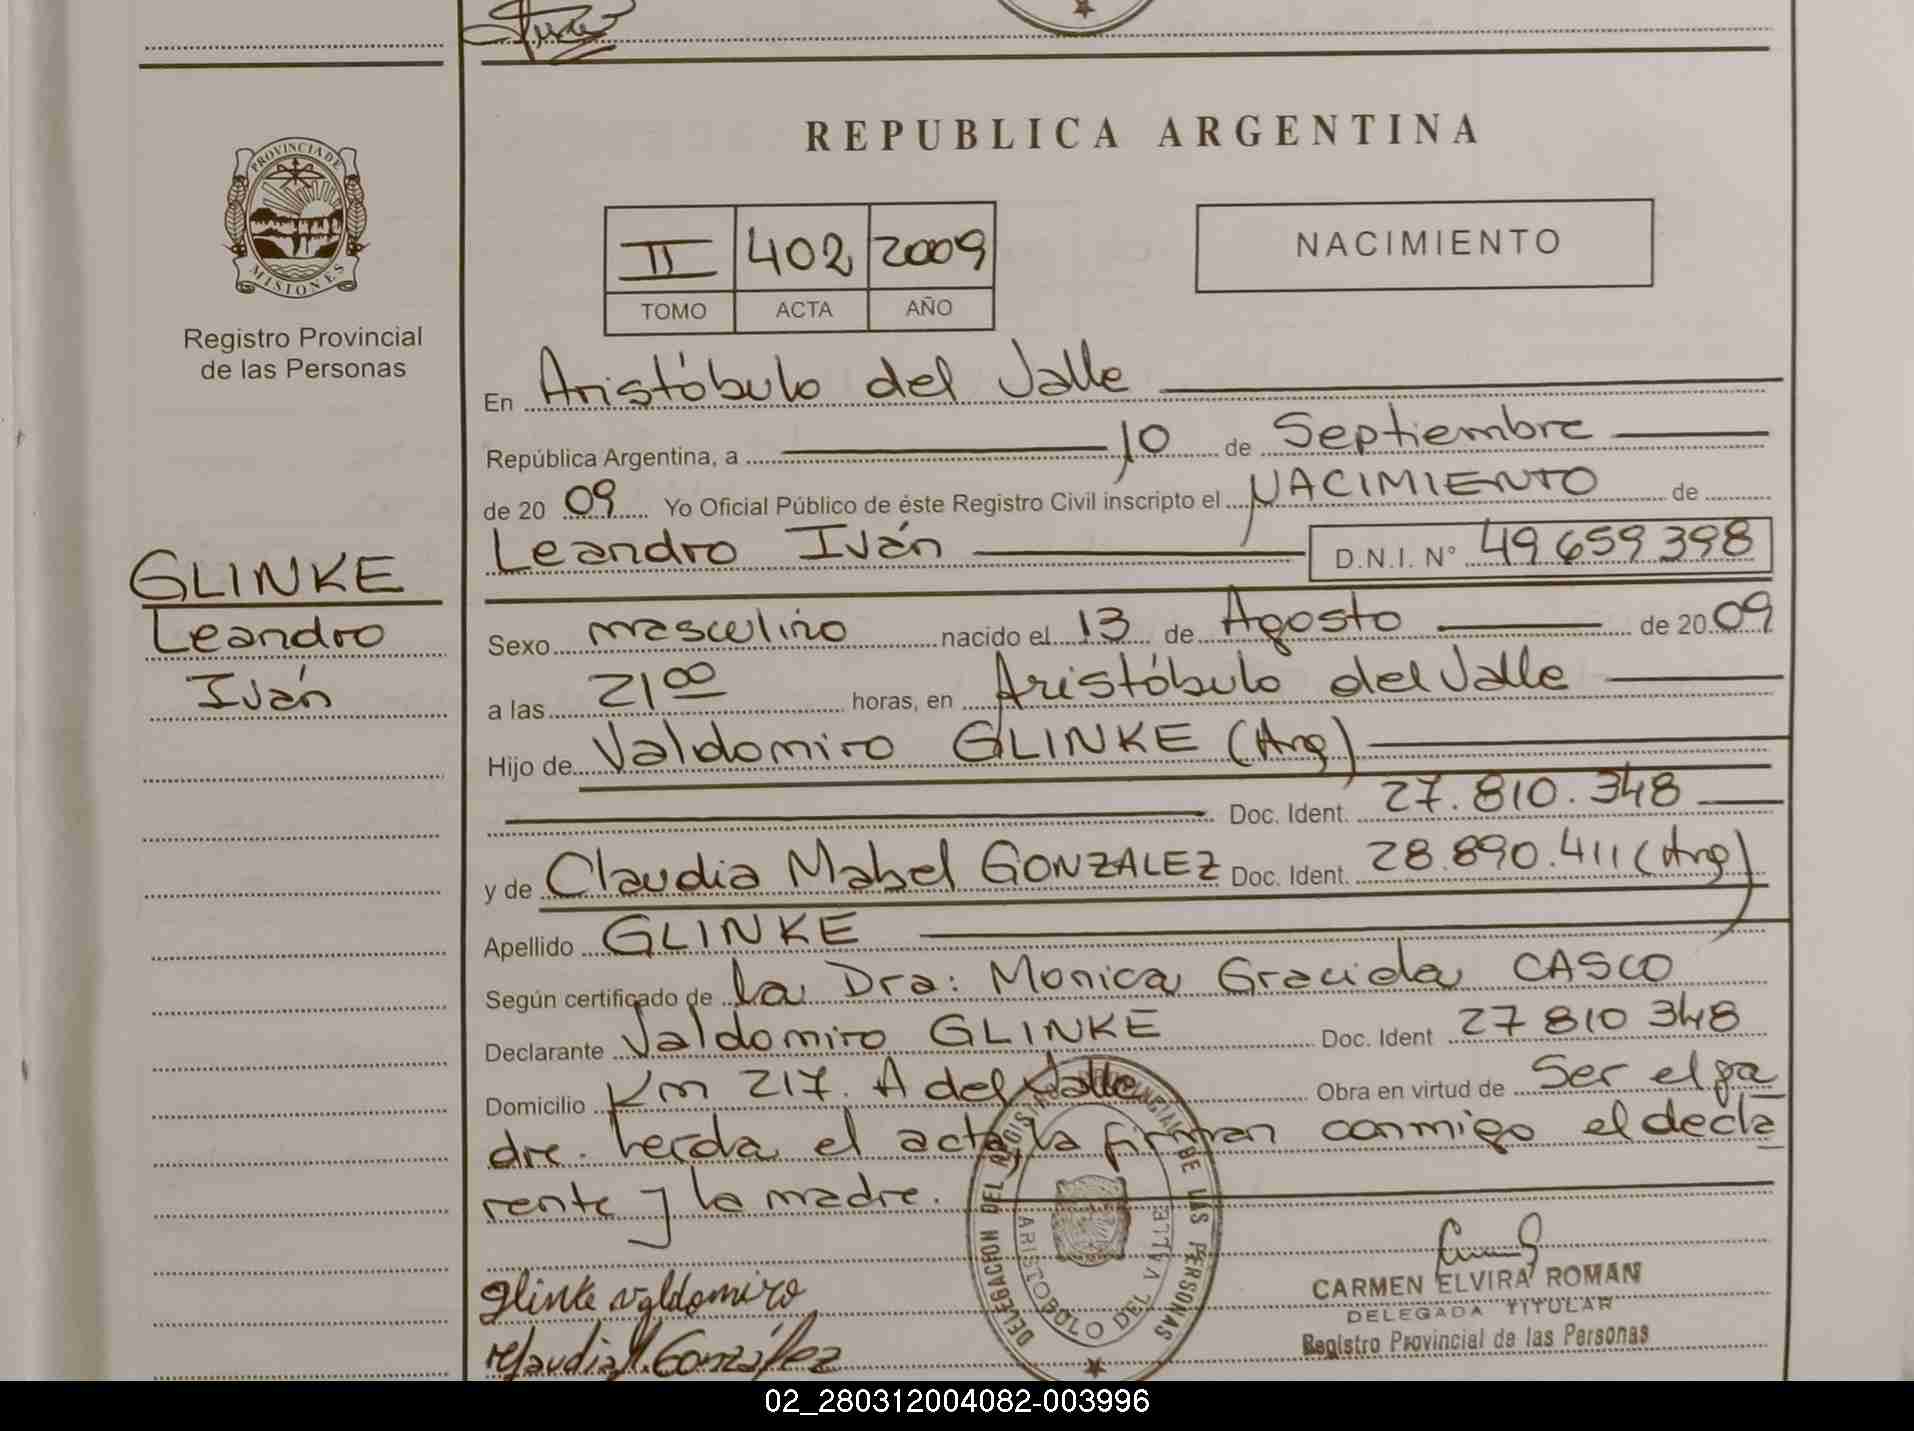 REPUBLICA ARGENTINA
PROVINCIA DE
MISIONES
Registro Provincial
de las Personas
II 402 2009
TOMO ACTA AÑO
NACIMIENTO
En Aristóbulo del Valle
República Argentina, a 10 de Septiembre
de 20 09 Yo Oficial Público de éste Registro Civil inscripto el NACIMIENTO de
Leandro Iván D.N.I. N° 49 659 398
GLINKE
Leandro
Iván
Sexo masculino nacido el 13 de Agosto de 20 09
a las 21 00 horas, en Aristóbulo del Valle
Hijo de Valdomiro GLINKE (Arg)
Doc. Ident. 27.810.348
y de Claudia Mabel GONZALEZ Doc. Ident. 28.890.411 (Arg)
Apellido GLINKE
Según certificado de la Dra: Monica Graciela CASCO
Declarante Valdomiro GLINKE Doc. Ident 27 810 348
Domicilio Km 217. A del Valle Obra en virtud de Ser el pa
dre. Leida el acta, la firman conmigo el decla
rante y la madre.
DELEGACION DEL REGISTRO PROVINCIAL DE LAS PERSONAS
ARISTOBOLO DEL VALLE
Glinke Valdomiro
González
CARMEN ELVIRA ROMAN
DELEGADA TITULAR
Registro Provincial de las Personas
02_280312004082-003996